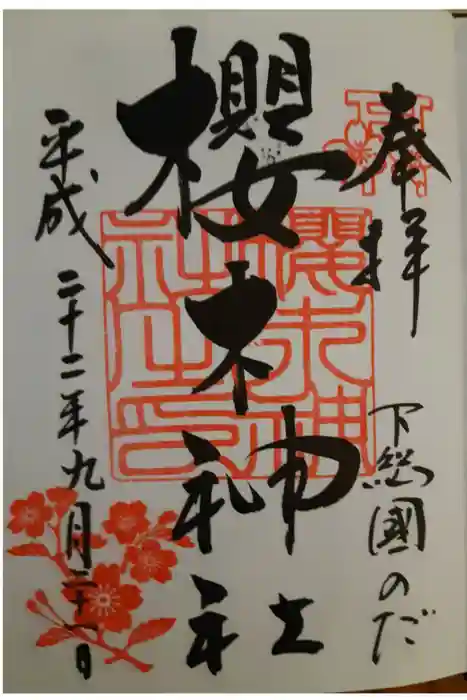 奉拝
下総國のだ
櫻木神社
平成二十二年九月二十一日
櫻木神社之印